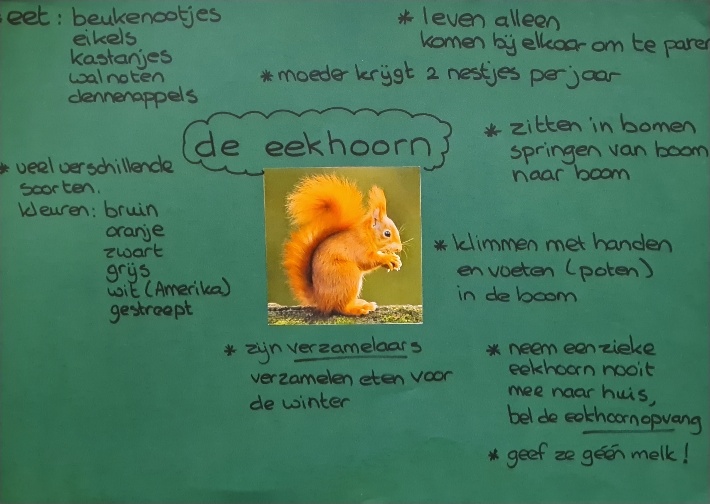 eet: beukenootjes
eikels
kastanjes
walnoten
dennenappels
* leven alleen
komen bij elkaar om te paren
* moeder krijgt 2 nestjes per jaar
de eekhoorn
* veel verschillende
soorten.
kleuren: bruin
oranje
zwart
grijs
wit (Amerika)
gestreept
* zitten in bomen
springen van boom
naar boom
* klimmen met handen
en voeten (poten)
in de boom
* zijn verzamelaars
verzamelen eten voor
de winter
* neem een zieke
eekhoorn nooit
mee naar huis,
bel de eekhoornopvang
* geef ze géén melk!